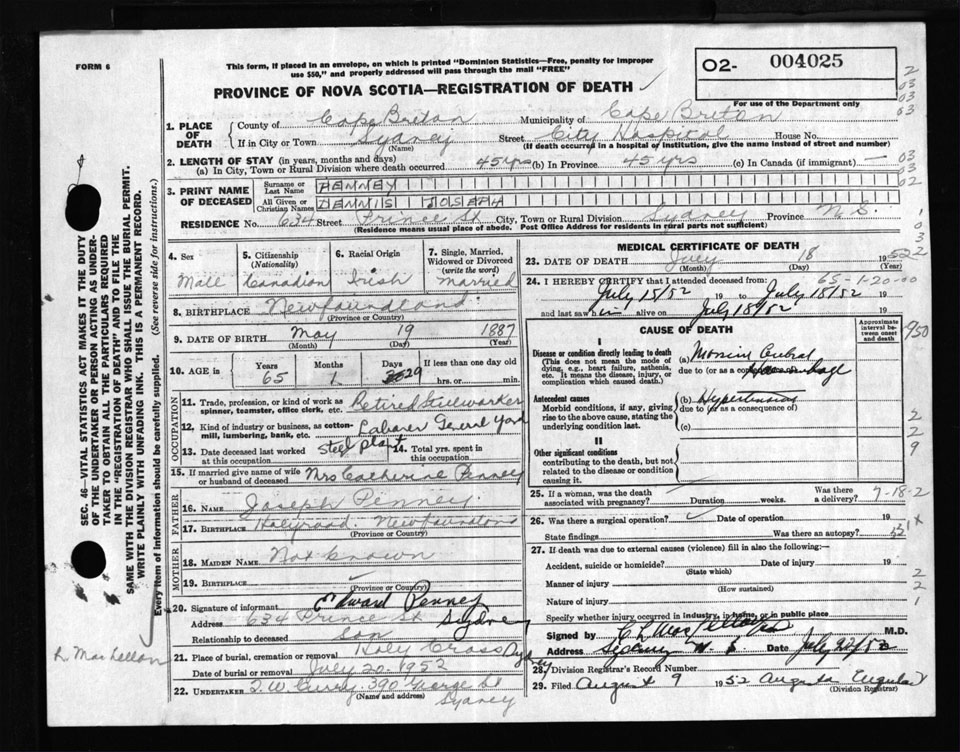 FORM 6
This form, if placed in an envelope, on which is printed "Dominion Statistics—Free, penalty for improper
use $50," and properly addressed will pass through the mail "FREE"
O2- 004025
PROVINCE OF NOVA SCOTIA—REGISTRATION OF DEATH
For use of the Department only
1. PLACE OF DEATH
County of Cape Breton Municipality of Cape Breton
If in City or Town Sydney Street City Hospital House No.
(Name) (If death occurred in a hospital or institution, give the name instead of street and number)
2. LENGTH OF STAY (in years, months and days)
(a) In City, Town or Rural Division where death occurred 45 yrs (b) In Province 45 yrs (c) In Canada (if immigrant) —
3. PRINT NAME OF DECEASED
Surname or Last Name PENNEY
All Given or Christian Names DENNIS JOSEPH
RESIDENCE No. 634 Street Prince St City, Town or Rural Division Sydney Province N.S.
(Residence means usual place of abode. Post Office Address for residents in rural parts not sufficient)
4. Sex
Male
5. Citizenship (Nationality)
Canadian
6. Racial Origin
Irish
7. Single, Married, Widowed or Divorced (write the word)
Married
8. BIRTHPLACE Newfoundland
(Province or Country)
9. DATE OF BIRTH May 19 1887
(Month) (Day) (Year)
10. AGE in Years Months Days If less than one day old
65 1 29 hrs. or min.
OCCUPATION
11. Trade, profession, or kind of work as
spinner, teamster, office clerk, etc. Retired Steelworker
12. Kind of industry or business, as cotton-
mill, lumbering, bank, etc. Laborer General Yard
steel plant
13. Date deceased last worked at this occupation
14. Total yrs. spent in this occupation
15. If married give name of wife
or husband of deceased Mrs Catherine Penney
FATHER
16. NAME Joseph Penney
17. BIRTHPLACE Holyrood Newfoundland
(Province or Country)
MOTHER
18. MAIDEN NAME Not known
19. BIRTHPLACE
(Province or Country)
20. Signature of informant Edward Penney
Address 634 Prince St Sydney
Relationship to deceased Son
21. Place of burial, cremation or removal Holy Cross Sydney
Date of burial or removal July 20, 1952
22. UNDERTAKER T.W. Curry 390 George St
(Name and address) Sydney
MEDICAL CERTIFICATE OF DEATH
23. DATE OF DEATH July 18 1952
(Month) (Day) (Year)
24. I HEREBY CERTIFY that I attended deceased from: 65-1-20-00
July 15/52 19 to July 18/52 19
and last saw h alive on July 18/52 19
CAUSE OF DEATH
Approximate interval between onset and death
I
Disease or condition directly leading to death
(This does not mean the mode of
dying, e.g., heart failure, asthenia,
etc. It means the disease, injury, or
complication which caused death.)
(a) Massive Cerebral
due to (or as a consequence of) Haemorrhage
Antecedent causes
Morbid conditions, if any, giving
rise to the above cause, stating the
underlying condition last.
(b) Hypertension
due to (or as a consequence of)
(c)
II
Other significant conditions
contributing to the death, but not
related to the disease or condition
causing it.
25. If a woman, was the death
associated with pregnancy? Duration weeks. Was there a delivery?
7-18-2
26. Was there a surgical operation? Date of operation 19
State findings Was there an autopsy?
27. If death was due to external causes (violence) fill in also the following:—
Accident, suicide or homicide? Date of injury 19
(State which)
Manner of injury
(How sustained)
Nature of injury
Specify whether injury occurred in industry, in home, or in public place
Signed by M.D.
Address Sydney N.S. Date July 20/52
28. Division Registrar's Record Number
29. Filed August 9 1952 Augusta
(Division Registrar)
SEC. 46—VITAL STATISTICS ACT MAKES IT THE DUTY
OF THE UNDERTAKER OR PERSON ACTING AS UNDER-
TAKER TO OBTAIN ALL THE PARTICULARS REQUIRED
IN THE "REGISTRATION OF DEATH" AND TO FILE THE
SAME WITH THE DIVISION REGISTRAR WHO SHALL ISSUE THE BURIAL PERMIT.
WRITE PLAINLY WITH UNFADING INK. THIS IS A PERMANENT RECORD.
Every item of information should be carefully supplied. (See reverse side for instructions.)
MacLellan